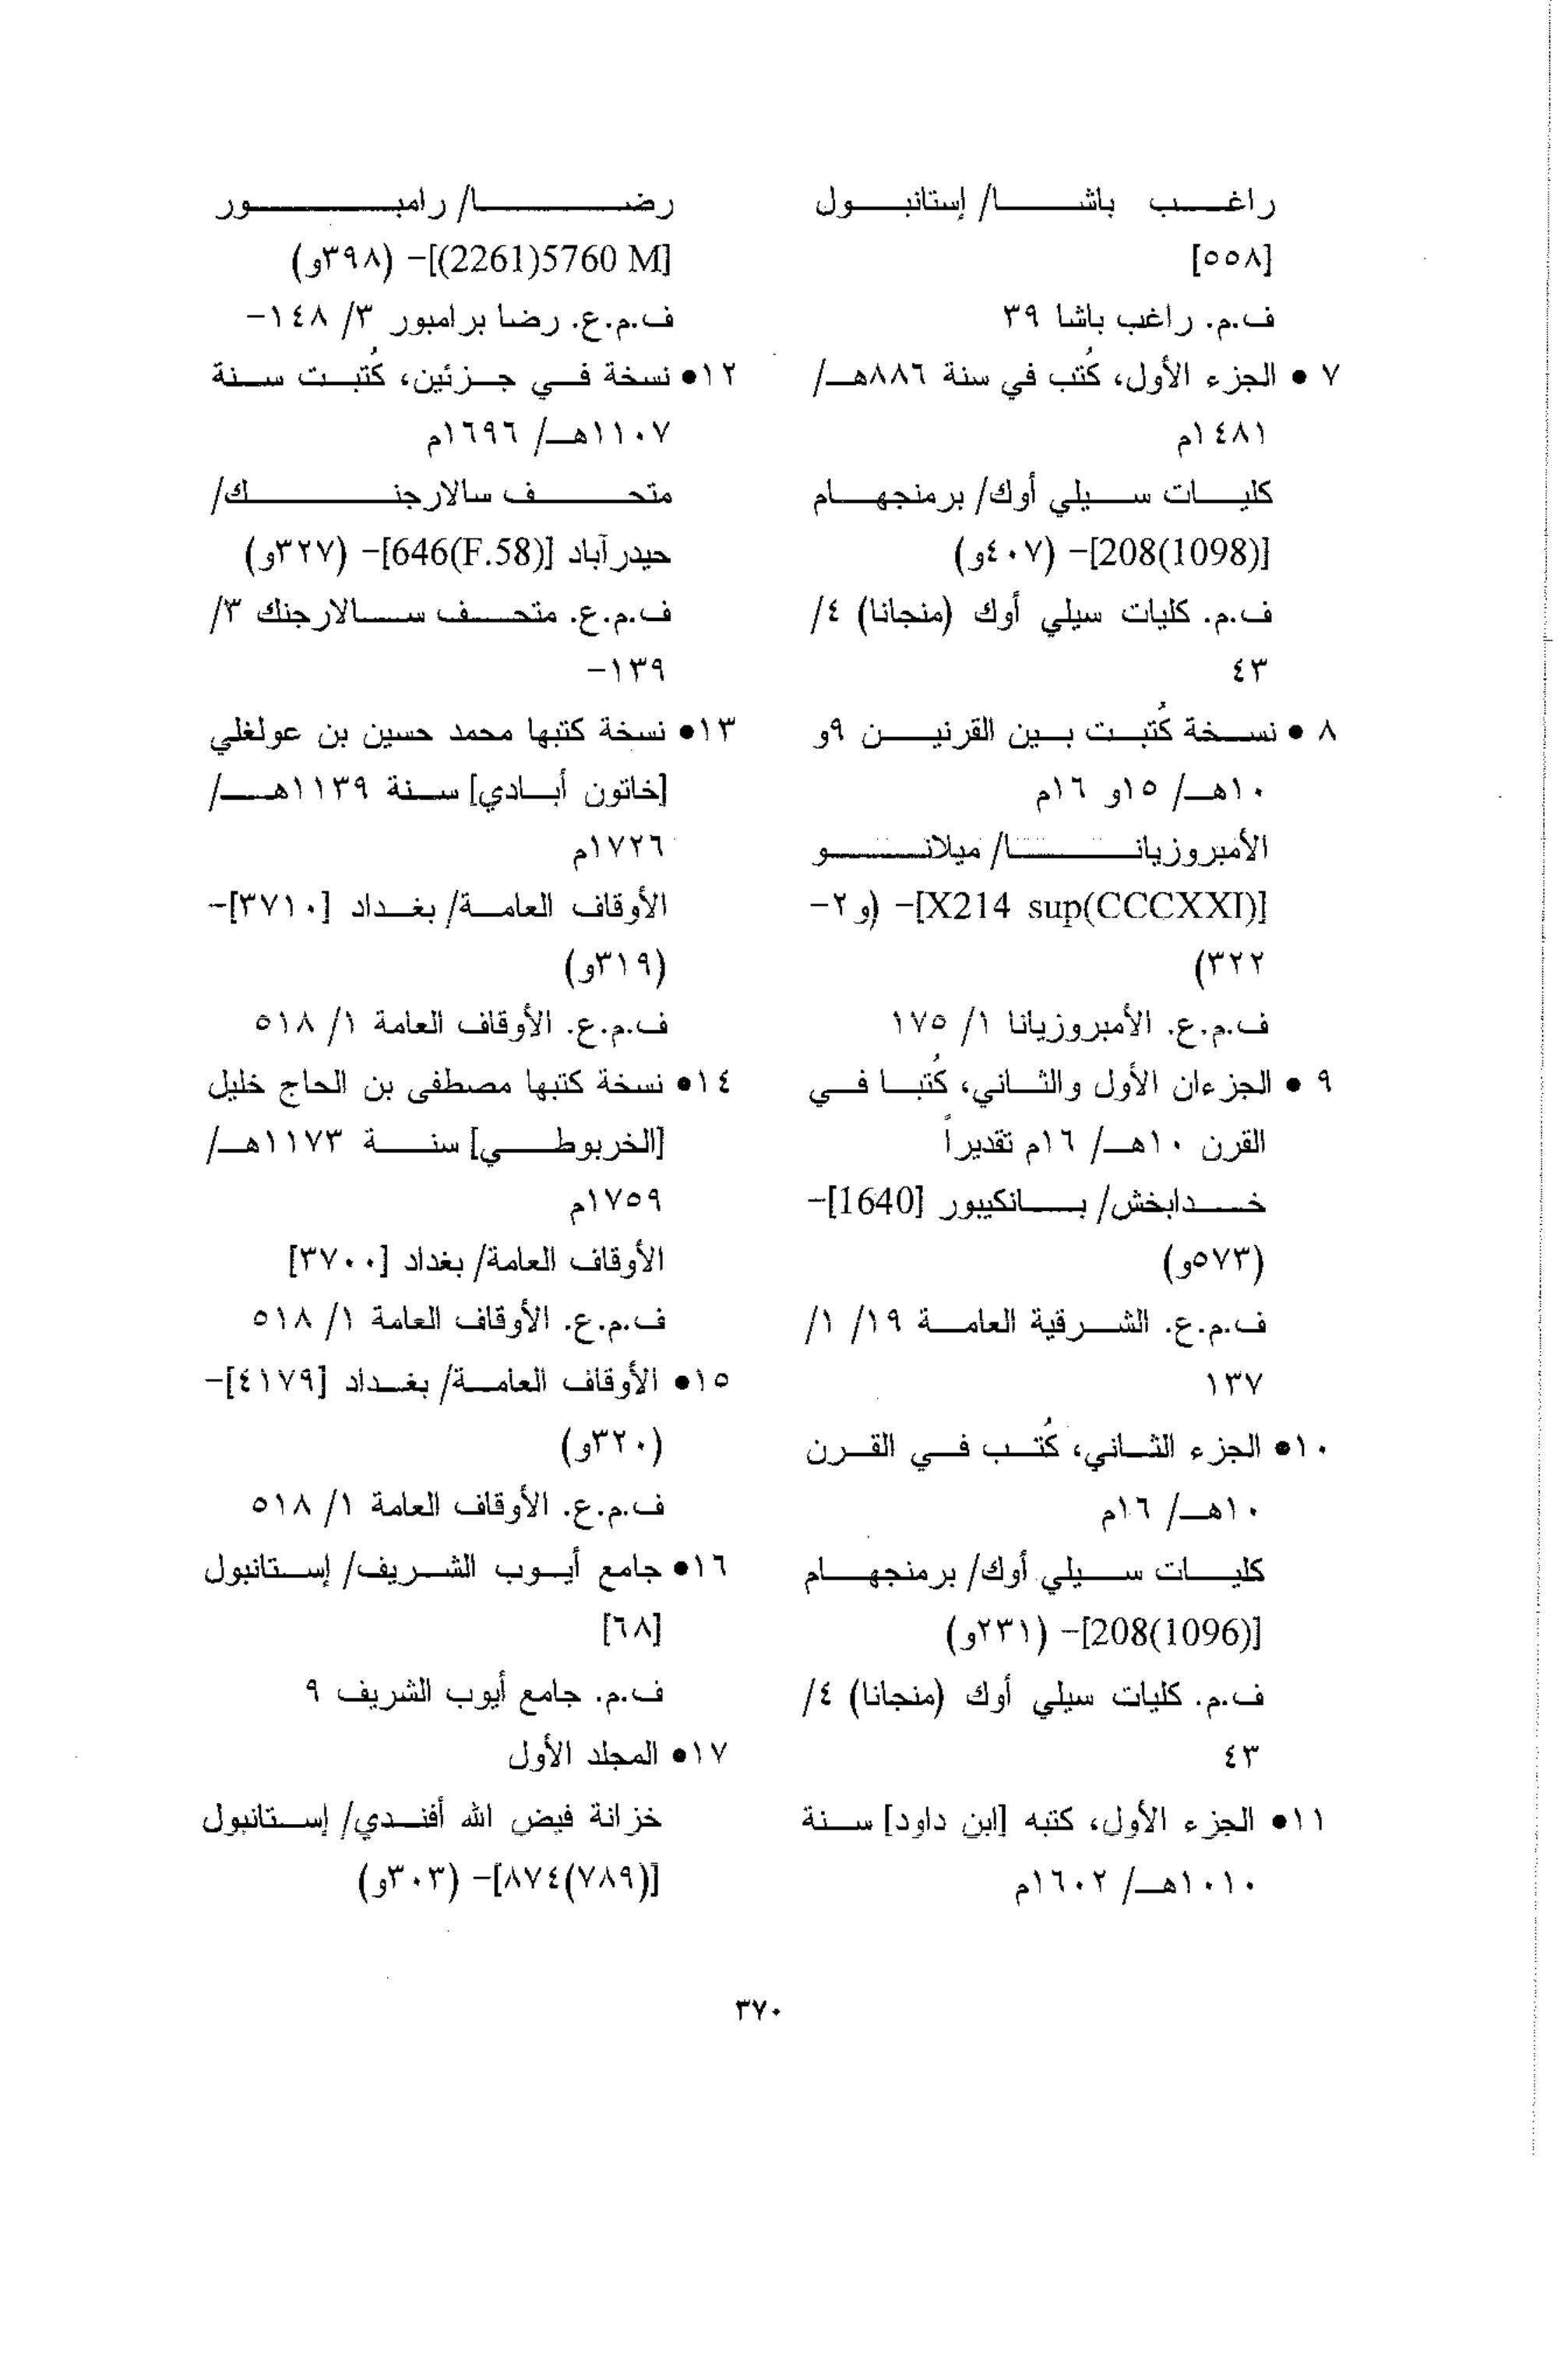 راغب باشا/ إستانبول
[٥٥٨]
ف.م. راغب باشا ٣٩
٧ • الجزء الأول، كُتب في سنة ٨٨٦هـ/
١٤٨١م
كليات سيلي أوك/ برمنجهام
[208(1098)]- (٤٠٧و)
ف.م. كليات سيلي أوك (منجانا) ٤/
٤٣
٨ • نسخة كُتبت بين القرنين ٩و
١٠هـ/ ١٥و ١٦م
الأمبروزيانا/ ميلانو
[X214 sup(CCCXXI)]- (و ٢-
٣٢٢)
ف.م.ع. الأمبروزيانا ١/ ١٧٥
٩ • الجزءان الأول والثاني، كُتبا في
القرن ١٠هـ/ ١٦م تقديراً
خدابخش/ بانكيبور [1640]-
(٥٧٣و)
ف.م.ع. الشرقية العامة ١٩/ ١/
١٣٧
١٠• الجزء الثاني، كُتب في القرن
١٠هـ/ ١٦م
كليات سيلي أوك/ برمنجهام
[208(1096)]- (٢٣١و)
ف.م. كليات سيلي أوك (منجانا) ٤/
٤٣
١١• الجزء الأول، كتبه [ابن داود] سنة
١٠١٠هـ/ ١٦٠٢م
رضا/ رامبور
[(2261)5760 M]- (٣٩٨و)
ف.م.ع. رضا برامبور ٣/ ١٤٨-
١٢• نسخة في جزئين، كُتبت سنة
١١٠٧هـ/ ١٦٩٦م
متحف سالارجنك/
حيدرآباد [646(F.58)]- (٣٢٧و)
ف.م.ع. متحف سالارجنك ٣/
١٣٩-
١٣• نسخة كتبها محمد حسين بن عولغلي
[خاتون أبادي] سنة ١١٣٩هـ/
١٧٢٦م
الأوقاف العامة/ بغداد [٣٧١٠]-
(٣١٩و)
ف.م.ع. الأوقاف العامة ١/ ٥١٨
١٤• نسخة كتبها مصطفى بن الحاج خليل
[الخربوطي] سنة ١١٧٣هـ/
١٧٥٩م
الأوقاف العامة/ بغداد [٣٧٠٠]
ف.م.ع. الأوقاف العامة ١/ ٥١٨
١٥• الأوقاف العامة/ بغداد [٤١٧٩]-
(٣٢٠و)
ف.م.ع. الأوقاف العامة ١/ ٥١٨
١٦• جامع أيوب الشريف/ إستانبول
[٦٨]
ف.م. جامع أيوب الشريف ٩
١٧• المجلد الأول
خزانة فيض الله أفندي/ إستانبول
[(٧٨٩)٨٧٤]- (٣٠٣و)
٣٧٠